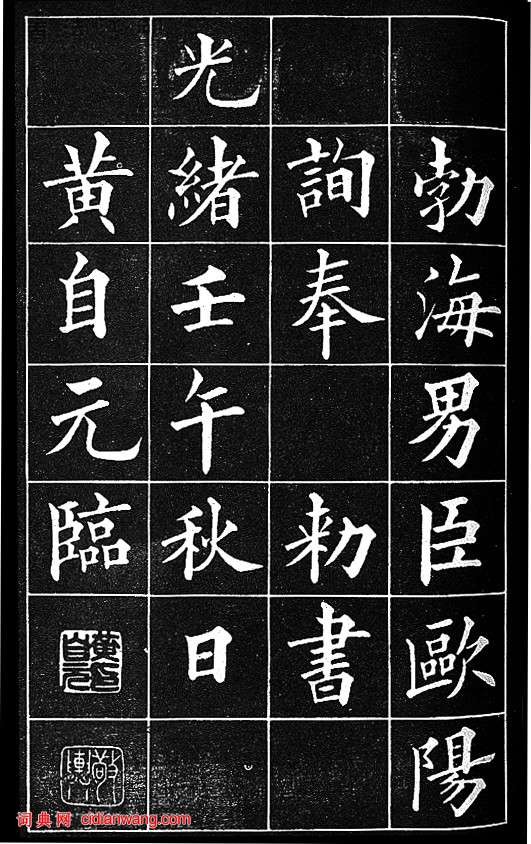 勃海男臣歐陽
詢奉 勅書
光緒壬午秋日
黄自元臨
黄自元
敬輿
词典网 cidianwang.com